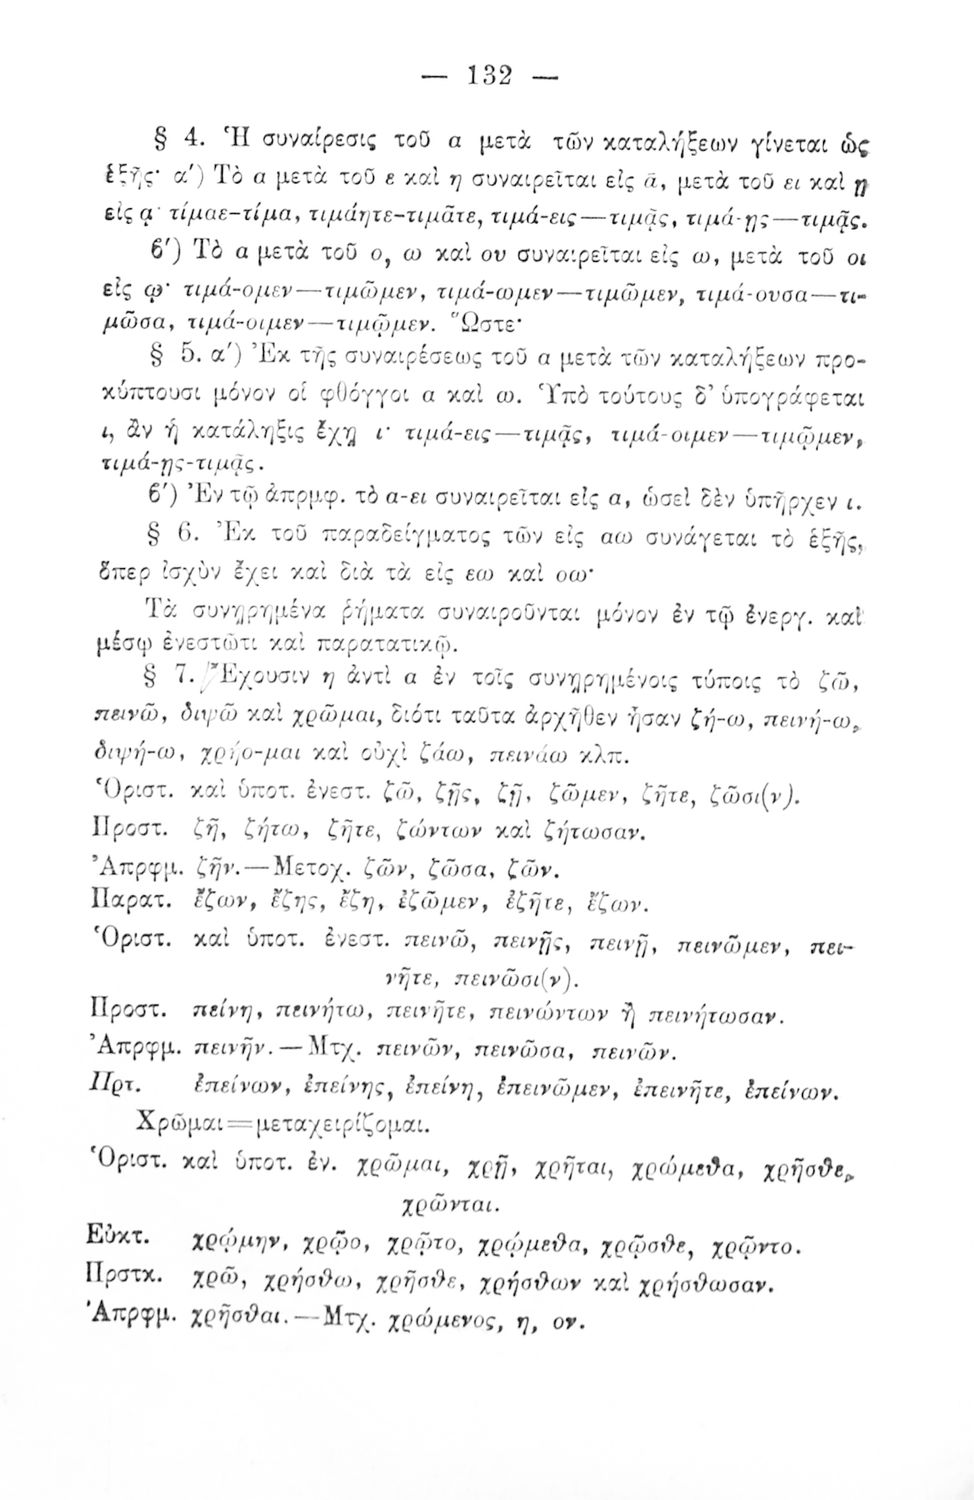 — 132 —
§ 4. Ἡ συναίρεσις τοῦ α μετὰ τῶν καταλήξεων γίνεται ὡς
ἑξῆς· α′) Τὸ α μετὰ τοῦ ε καὶ η συναιρεῖται εἰς ᾱ, μετὰ τοῦ ει καὶ ῃ
εἰς ᾳ· τίμαε–τίμα, τιμάητε–τιμᾶτε, τιμά-εις—τιμᾷς, τιμά-ῃς—τιμᾷς.
β′) Τὸ α μετὰ τοῦ ο, ω καὶ ου συναιρεῖται εἰς ω, μετὰ τοῦ οι
εἰς ῳ· τιμά-ομεν—τιμῶμεν, τιμά-ωμεν—τιμῶμεν, τιμά-ουσα—τι-
μῶσα, τιμά-οιμεν—τιμῷμεν. Ὥστε·
§ 5. α′) Ἐκ τῆς συναιρέσεως τοῦ α μετὰ τῶν καταλήξεων προ-
κύπτουσι μόνον οἱ φθόγγοι α καὶ ω. Ὑπὸ τούτους δ’ ὑπογράφεται
ι, ἂν ἡ κατάληξις ἔχῃ ι· τιμά-εις—τιμᾷς, τιμά-οιμεν—τιμῷμεν,
τιμά-ῃς-τιμᾷς.
β′) Ἐν τῷ ἀπρμφ. τὸ α-ει συναιρεῖται εἰς α, ὡσεὶ δὲν ὑπῆρχεν ι.
§ 6. Ἐκ τοῦ παραδείγματος τῶν εἰς αω συνάγεται τὸ ἑξῆς,
ὅπερ ἰσχὺν ἔχει καὶ διὰ τὰ εἰς εω καὶ οω·
Τὰ συνῃρημένα ῥήματα συναιροῦνται μόνον ἐν τῷ ἐνεργ. καὶ
μέσῳ ἐνεστῶτι καὶ παρατατικῷ.
§ 7. Ἔχουσιν η ἀντὶ α ἐν τοῖς συνῃρημένοις τύποις τὸ ζῶ,
πεινῶ, διψῶ καὶ χρῶμαι, διότι ταῦτα ἀρχῆθεν ἦσαν ζή-ω, πεινή-ω,
διψή-ω, χρήο-μαι καὶ οὐχὶ ζάω, πεινάω κλπ.
Ὁριστ. καὶ ὑποτ. ἐνεστ. ζῶ, ζῇς, ζῇ, ζῶμεν, ζῆτε, ζῶσι(ν).
Προστ. ζῆ, ζήτω, ζῆτε, ζώντων καὶ ζήτωσαν.
Ἀπρφμ. ζῆν.—Μετοχ. ζῶν, ζῶσα, ζῶν.
Παρατ. ἔζων, ἔζης, ἔζη, ἐζῶμεν, ἐζῆτε, ἔζων.
Ὁριστ. καὶ ὑποτ. ἐνεστ. πεινῶ, πεινῇς, πεινῇ, πεινῶμεν, πει-
νῆτε, πεινῶσι(ν).
Προστ. πείνη, πεινήτω, πεινῆτε, πεινώντων ἢ πεινήτωσαν.
Ἀπρφμ. πεινῆν.—Μτχ. πεινῶν, πεινῶσα, πεινῶν.
Πρτ. ἐπείνων, ἐπείνης, ἐπείνη, ἐπεινῶμεν, ἐπεινῆτε, ἐπείνων.
Χρῶμαι=μεταχειρίζομαι.
Ὁριστ. καὶ ὑποτ. ἐν. χρῶμαι, χρῇ, χρῆται, χρώμεθα, χρῆσθε,
χρῶνται.
Εὐκτ. χρῴμην, χρῷο, χρῷτο, χρῴμεθα, χρῷσθε, χρῷντο.
Πρστκ. χρῶ, χρήσθω, χρῆσθε, χρήσθων καὶ χρήσθωσαν.
Ἀπρφμ. χρῆσθαι.—Μτχ. χρώμενος, η, ον.